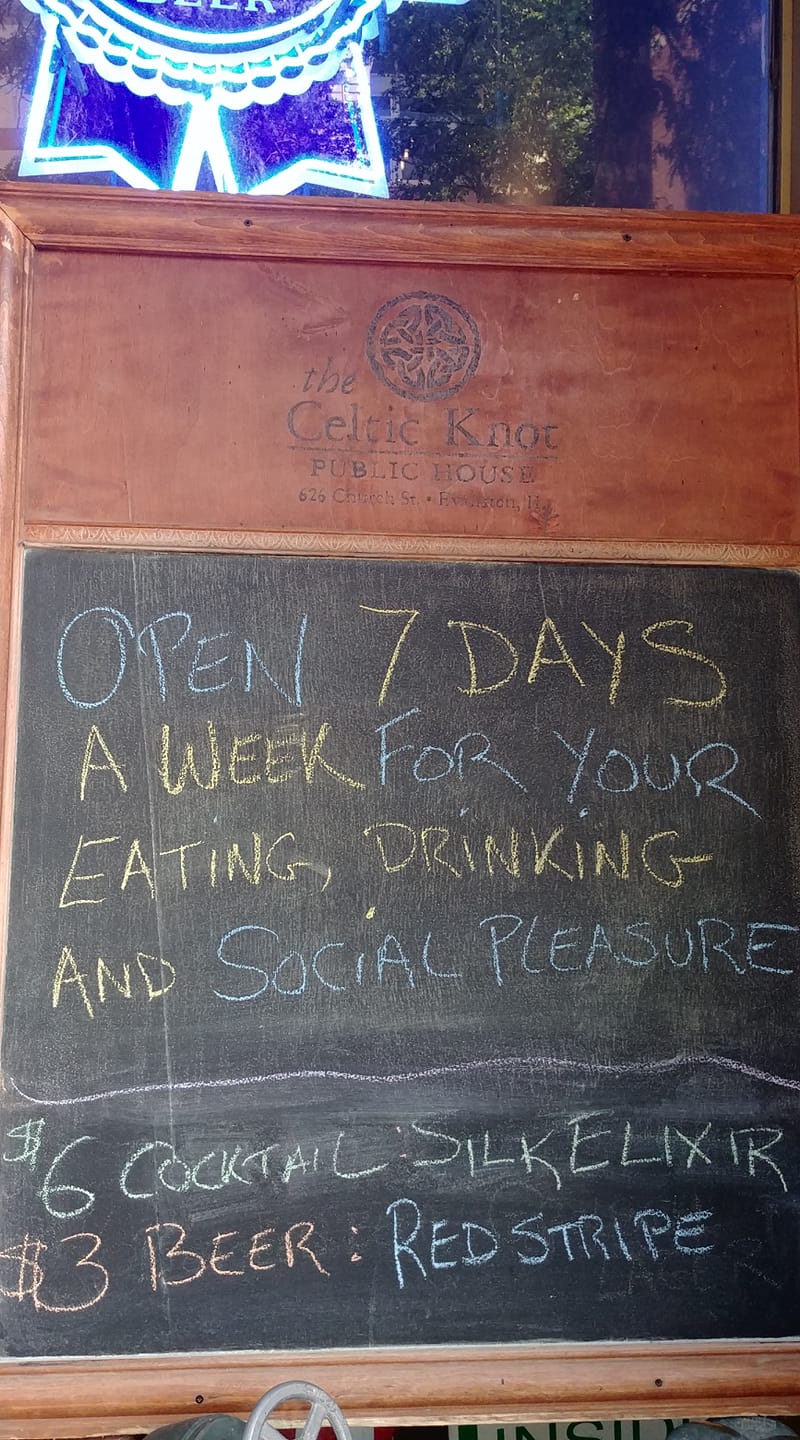 BEER
the
Celtic Knot
PUBLIC HOUSE
626 Church St. • Evanston, IL
OPEN 7 DAYS
A WEEK FOR YOUR
EATING, DRINKING
AND SOCIAL PLEASURE
$6 COCKTAIL: SILK ELIXIR
$3 BEER: RED STRIPE
LAGER
INSID